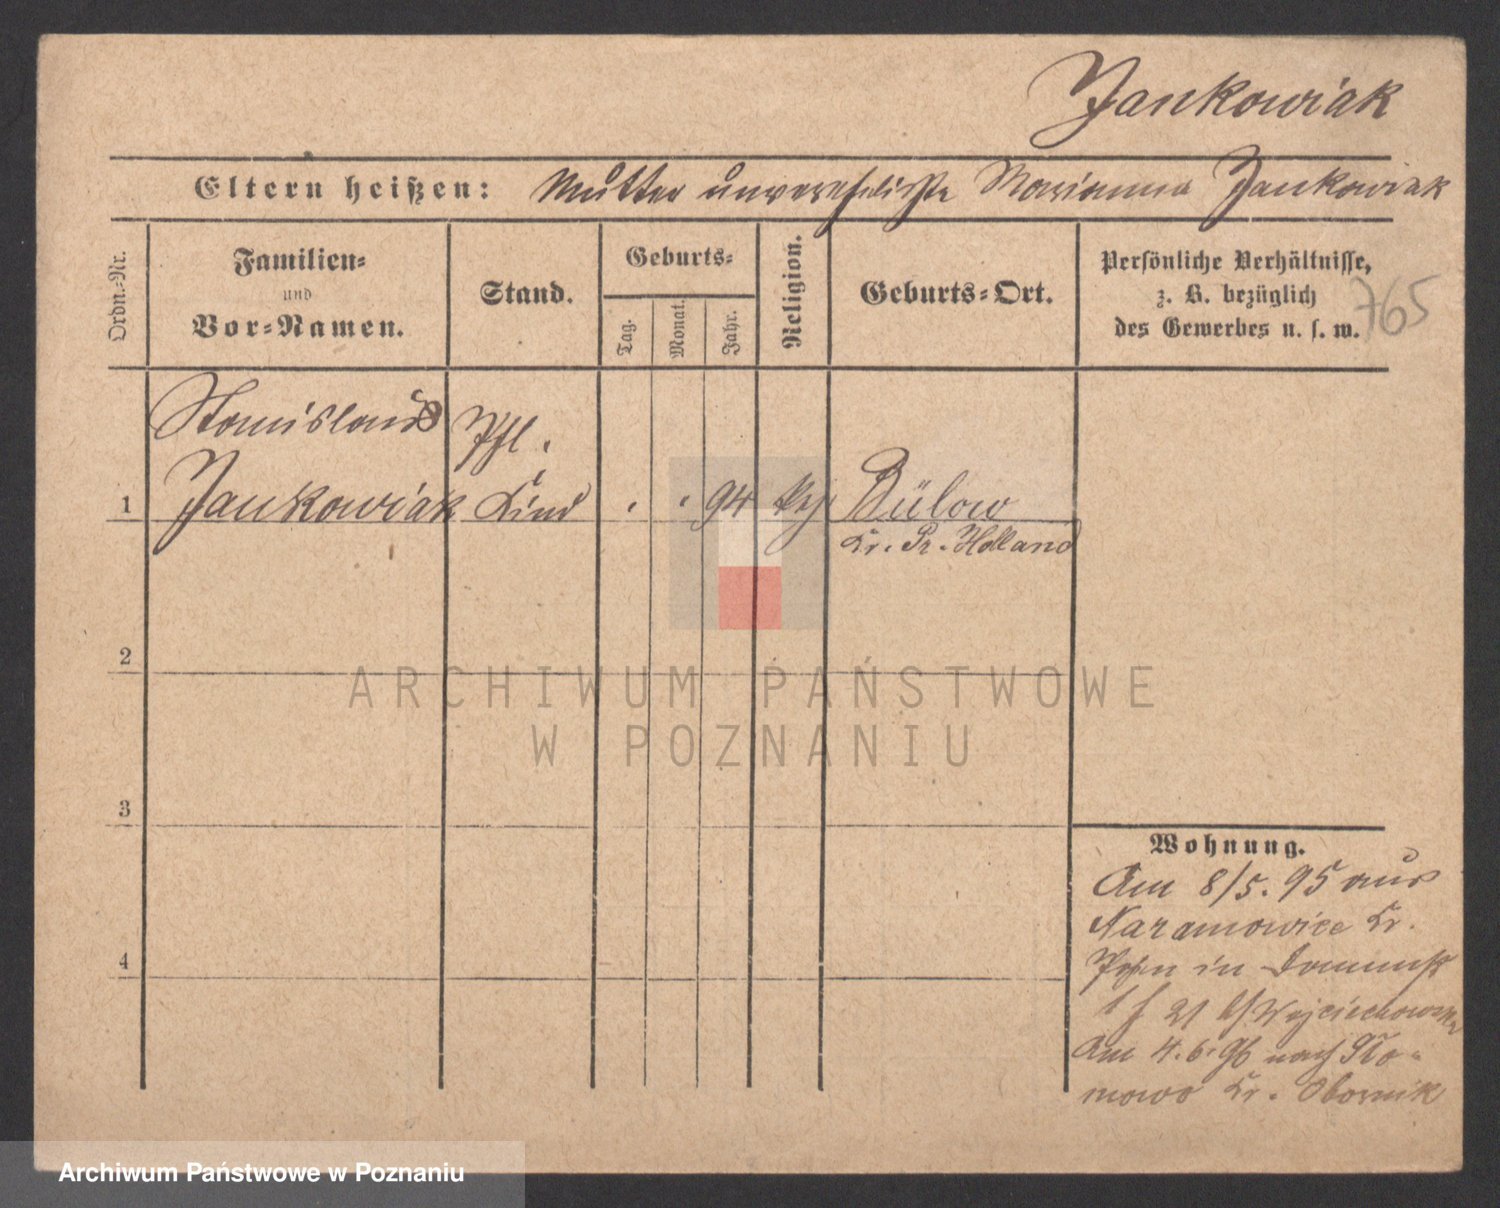 Jankowiak
Eltern heißen: Mutter unverehelichte Marianna Jankowiak
Ordn.-Nr.
Familien-
und
Vor-Namen.
Stand.
Geburts-
Tag.
Monat.
Jahr.
Religion.
Geburts-Ort.
Persönliche Verhältnisse,
z. B. bezüglich
des Gewerbes u. s. w.
765
Stanislaus
Pfl.
1 Jankowiak Kind 94 Bülow
Kr. Pr. Holland
2
ARCHIWUM PAŃSTWOWE
W POZNANIU
3
Wohnung.
Am 8/5. 95 aus
Naramowice Kr.
Posen in
21 Wojciechowska
Am 4. 6. 96 nach
Kr. Obornik
4
Archiwum Państwowe w Poznaniu